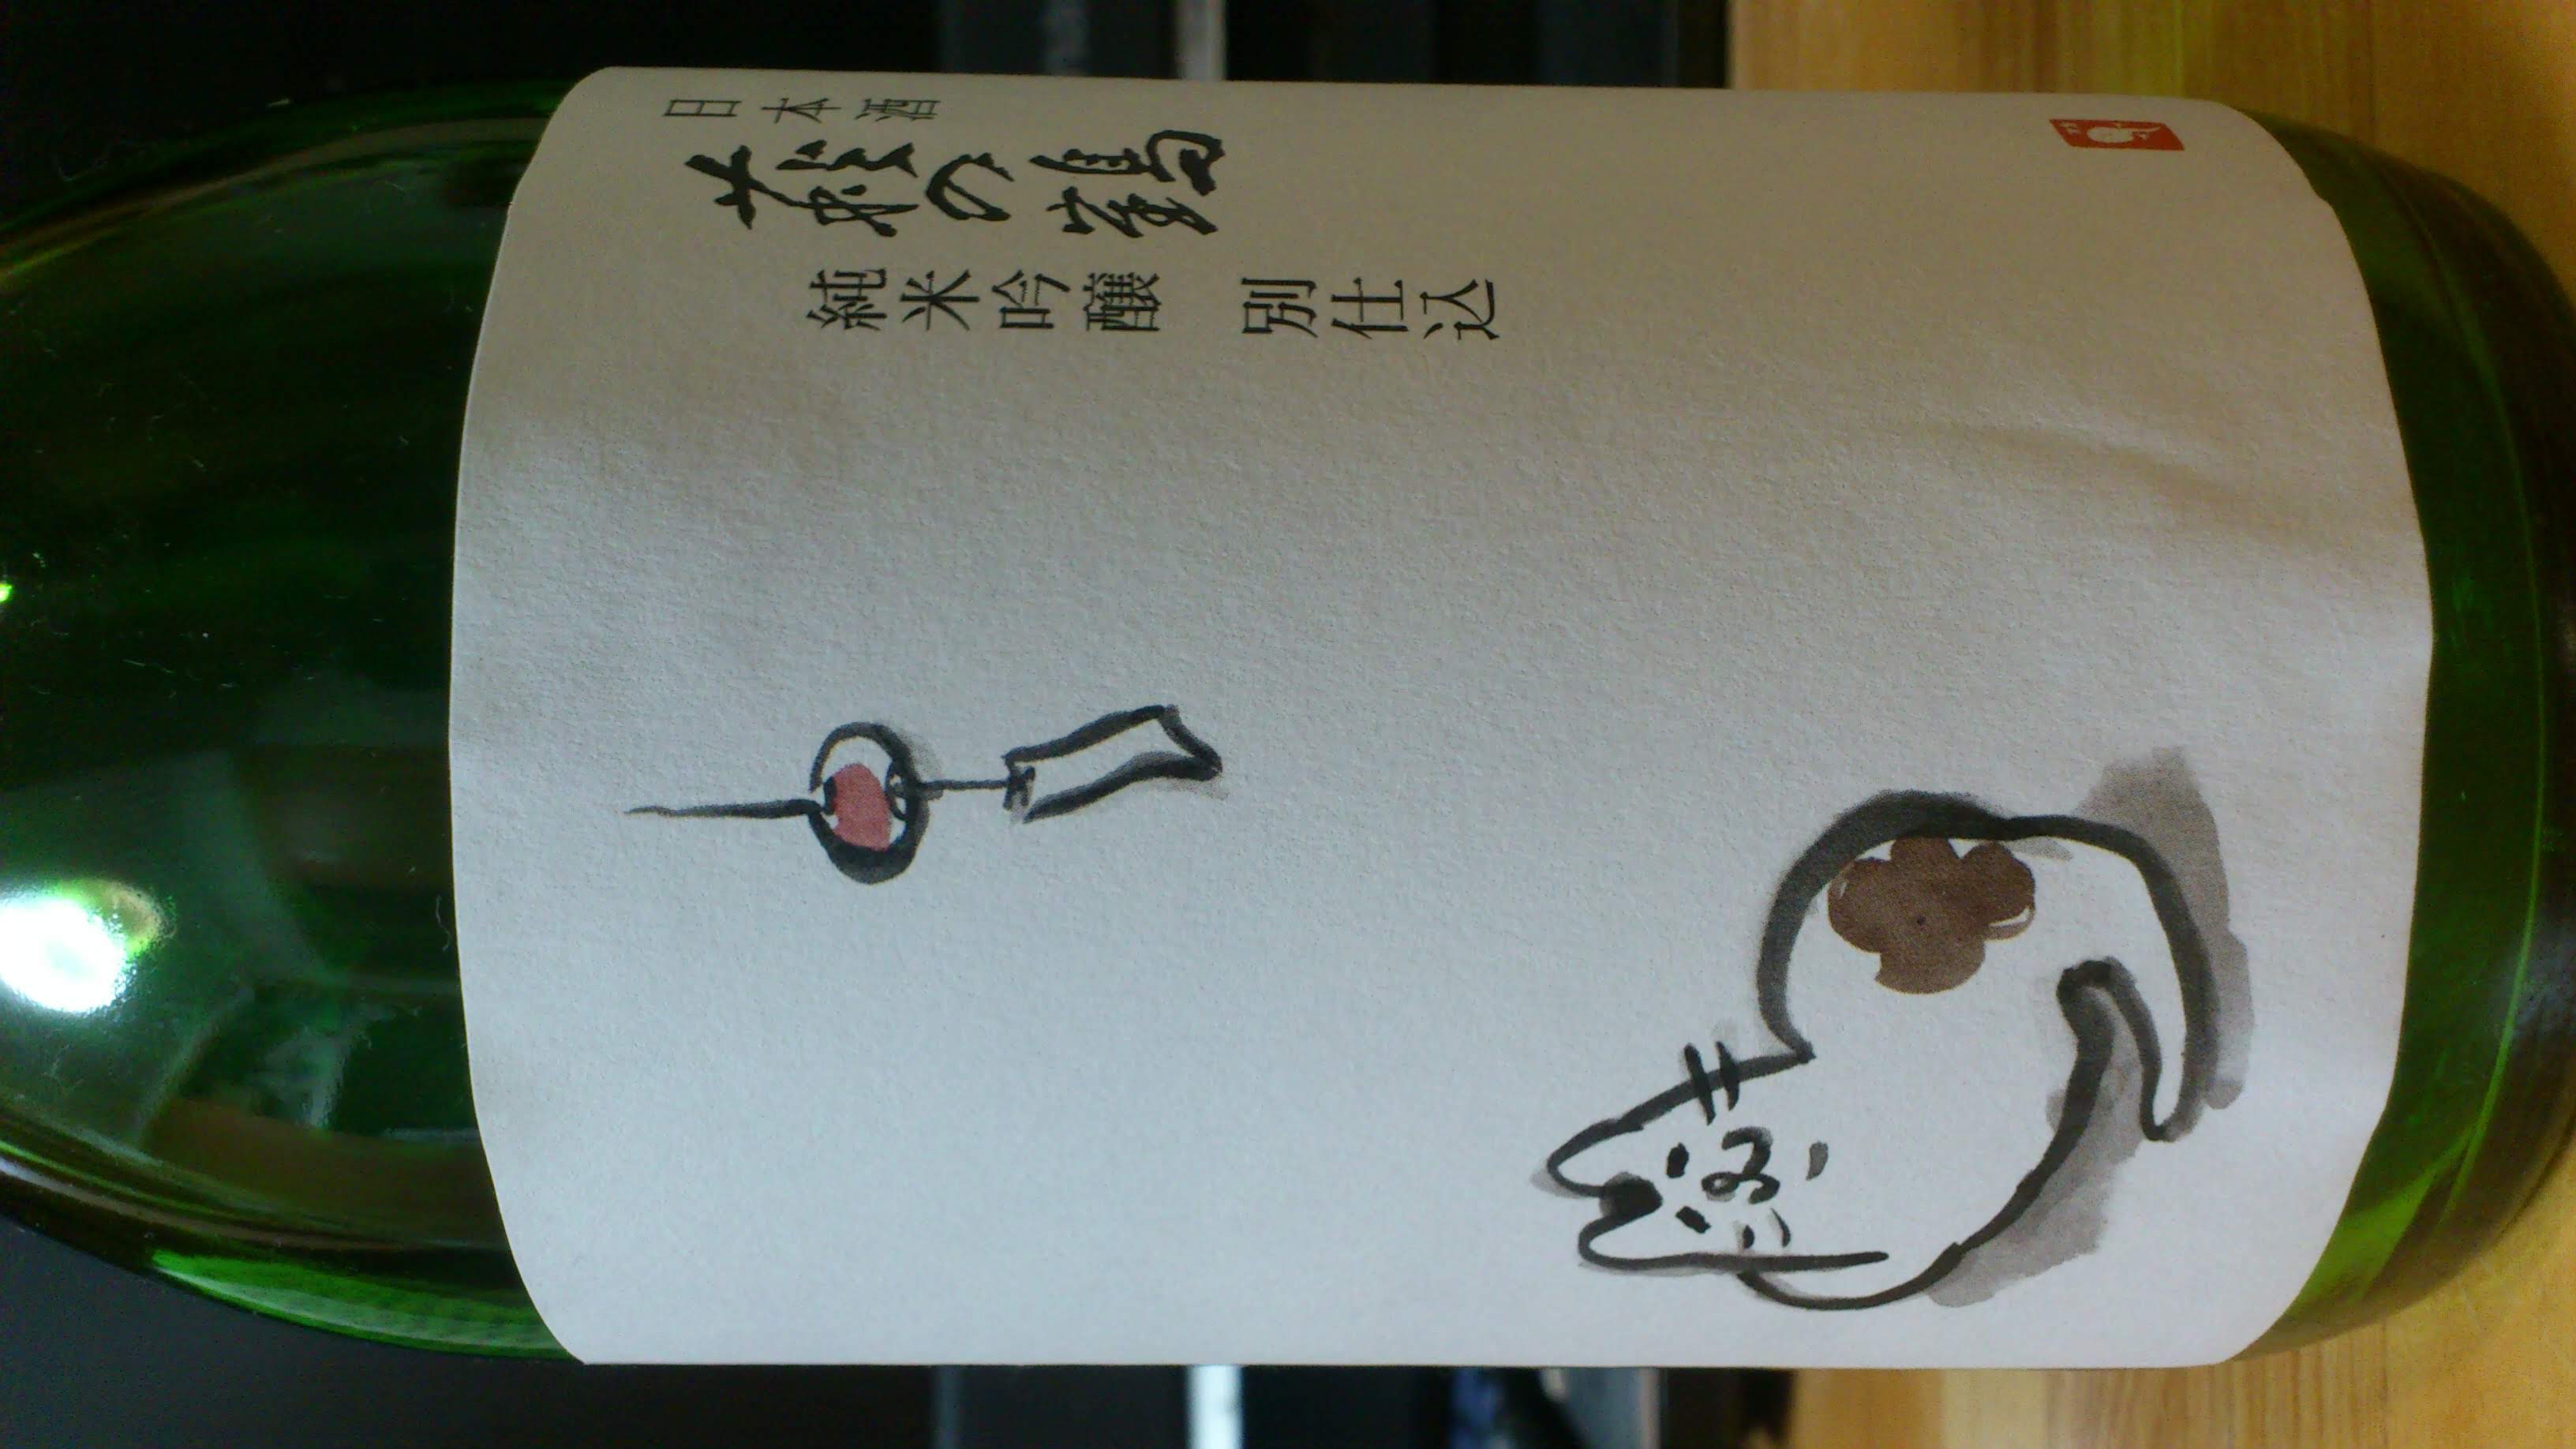 日本酒
萩の鶴
純米吟醸 別仕込